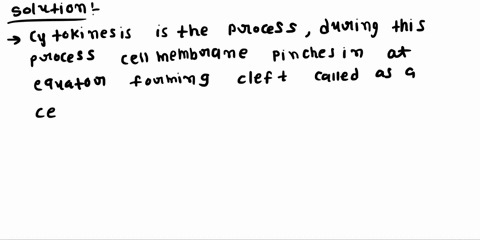 Solution:-
→ Cytokinesis is the process, during this
process cell membrane pinches in at
equator forming cleft called as a
ce